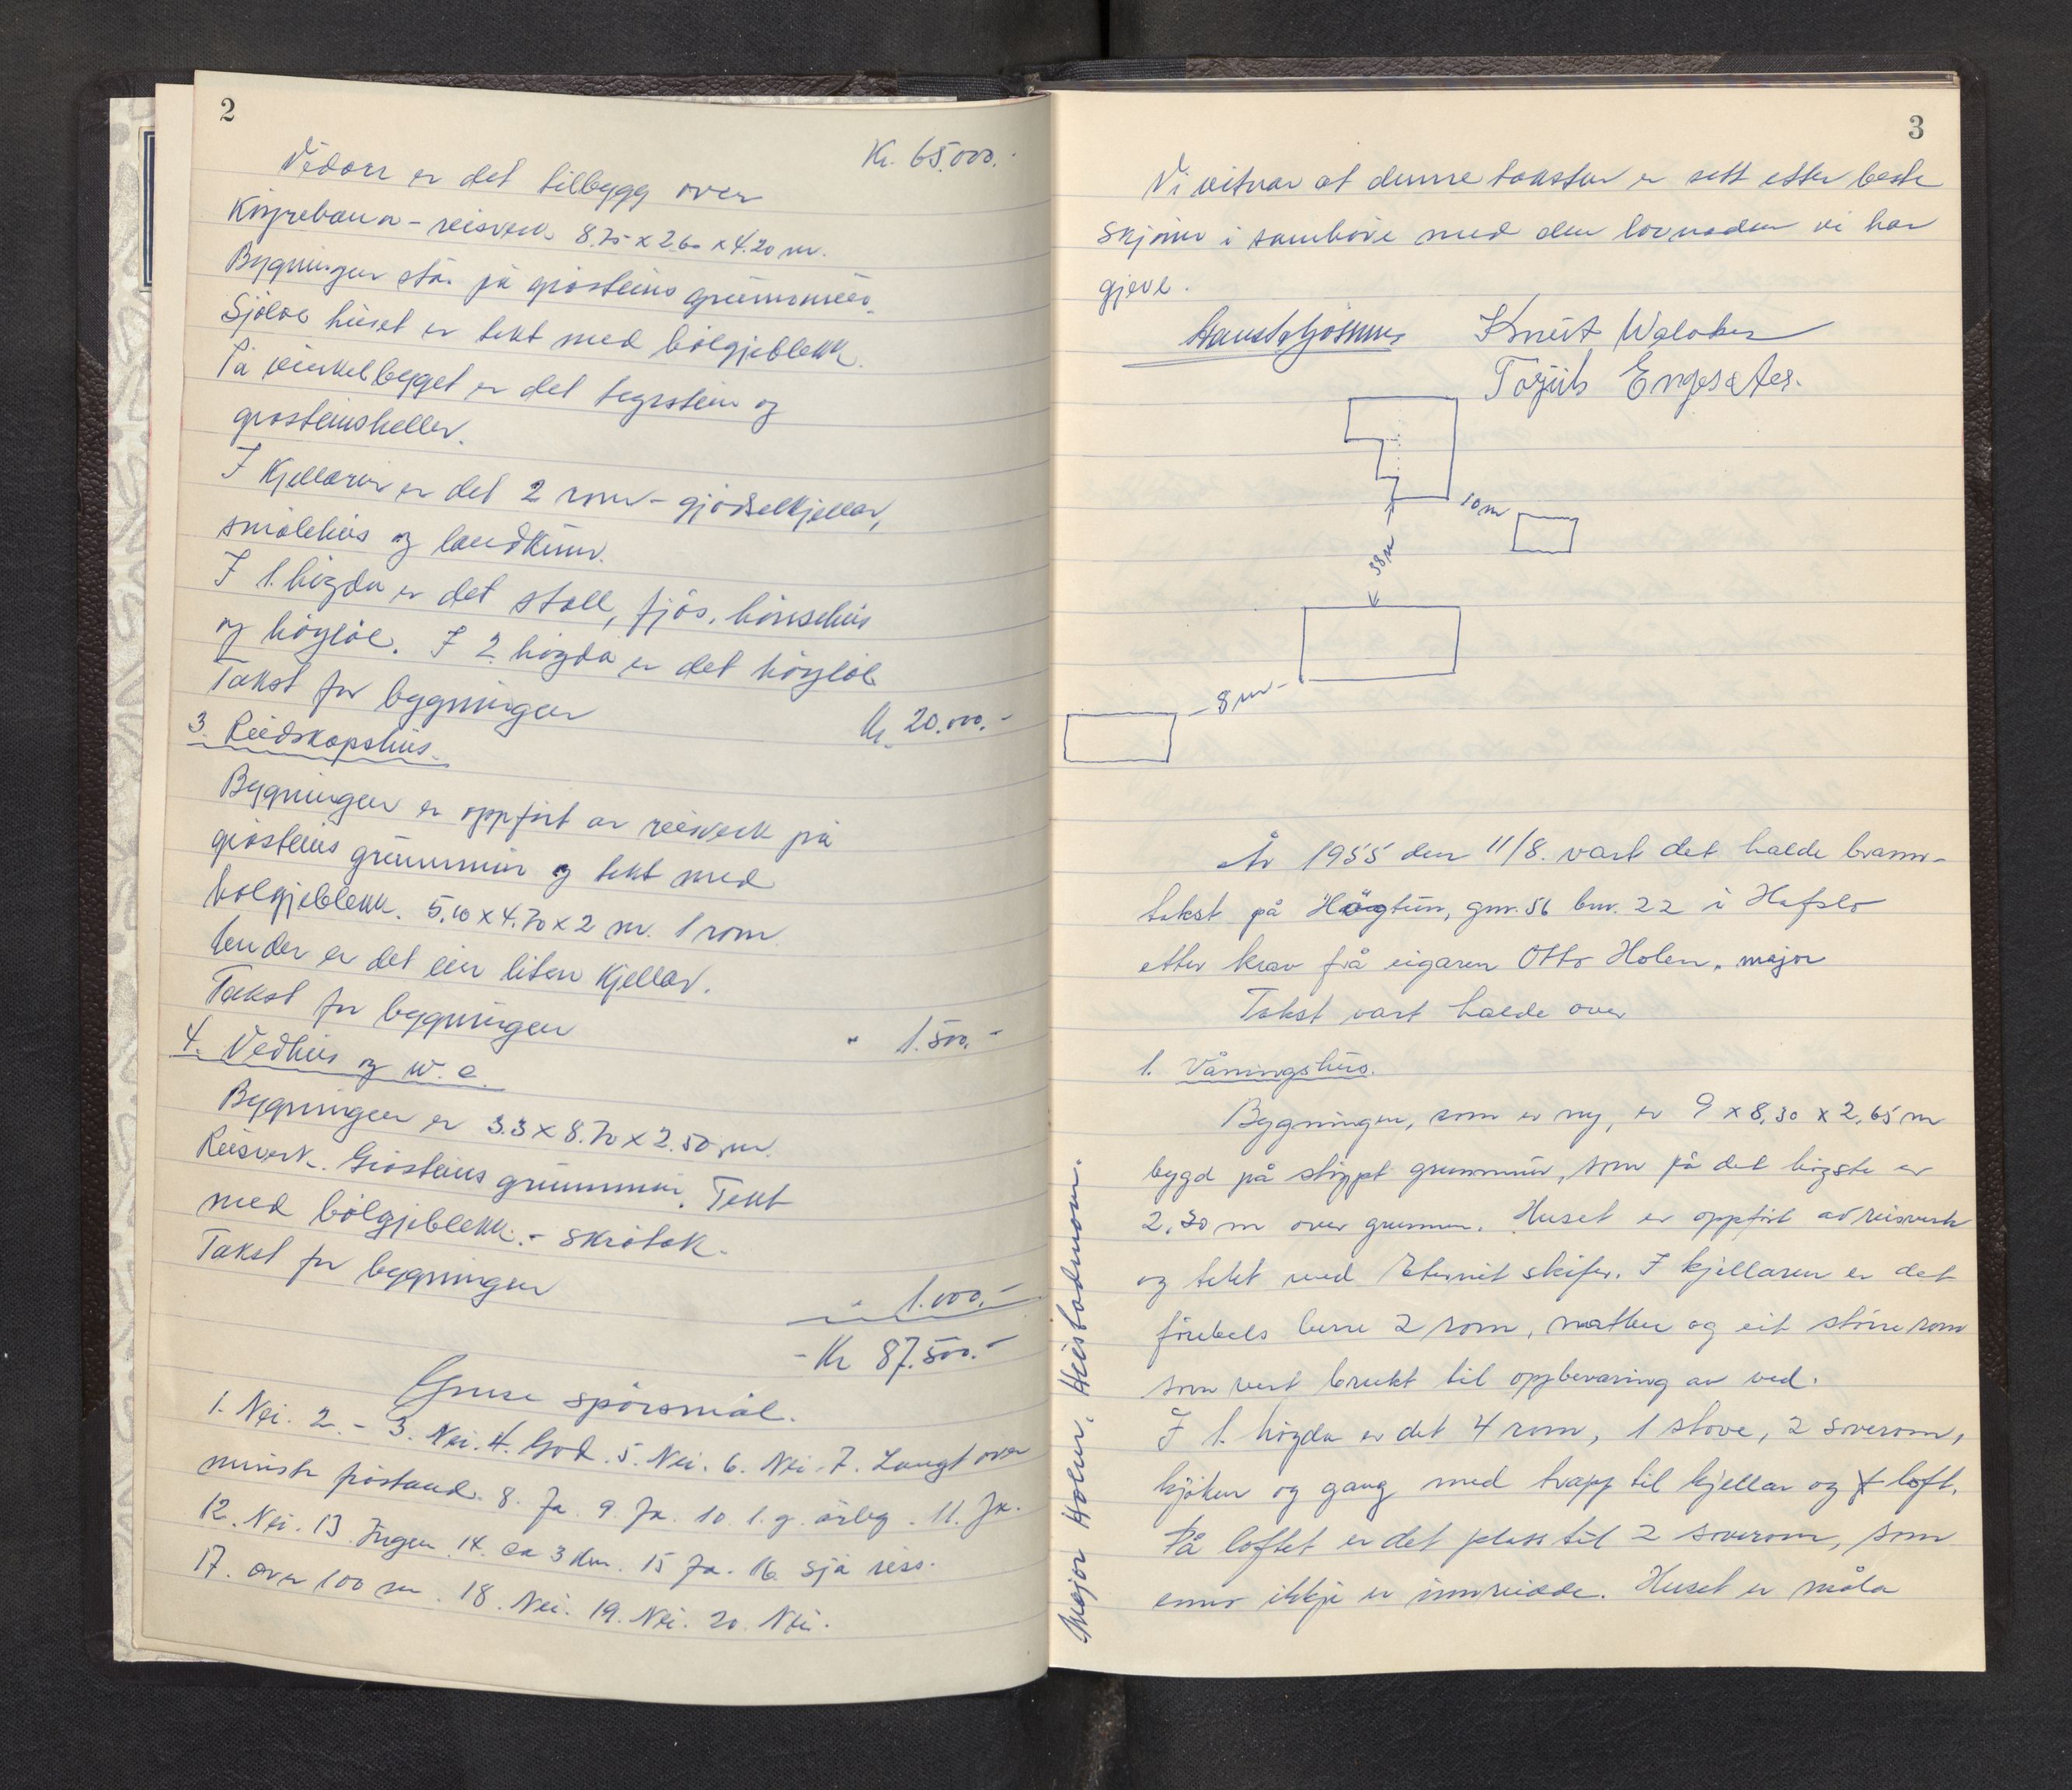 2
Kr. 65.000.-
Vidare er det tilbygg over
Köyrebaua - reisverk 8.75 x 2.60 x 4.20 m.
Bygningen står på gråsteins grunnmur.
Sjölve huset er tekt med bölgjeblekk.
På vinkelbygget er det tegrstein og
gråsteinsheller.
I Kjellaren er det 2 rom - gjödselkjellar,
smalehus og landkum.
I 1. högda er det stall, fjös, hönsehus
og höyloe. I 2. högda er det höyloe
Takst for bygningen Kr. 20.000.-
3. Reidskapshus.
Bygningen er oppfört av reisverk på
gråsteins grunnmur og tekt med
bölgjeblekk. 5,10 x 4.70 x 2 m. 1 rom.
Under er det ein liten Kjellar.
Takst for bygningen " 1.500.-
4. Vedhus og w.c.
Bygningen er 3.3 x 8.70 x 2.50 m.
Reisverk. Gråsteins grunnmur. Tekt
med bölgjeblekk. - skråtak.
Takst for bygningen " 1.000.-
- Kr 87.500.-
Ymse spörsmål.
1. Nei. 2. - 3. Nei. 4. God. 5. Nei. 6. Nei. 7. Langt over
minste påstand. 8. Ja. 9. Ja. 10. 1. g. årleg. 11. Ja.
12. Nei. 13. Ingen. 14. ca 3 km. 15 Ja. 16. sjå riss.
17. over 100 m. 18. Nei. 19. Nei. 20. Nei.
3
Vi vitnar at denne taksten er sett etter beste
skjönn i samhöve med den lovnaden vi har
gjeve.
Knut Walaker
Torjuls Engesæter.
10 m
38 m
- 8 m -
År 1955 den 11/8. vart det halde brann-
takst på Högtun, gnr. 56 bnr. 22 i Hafslo
etter krav frå eigaren Otto Holen, major
Takst vart halde over
1. Våningshus.
Bygningen, som er ny, er 9 x 8,30 x 2,65 m
bygd på stöypt grunnmur, som på det högste er
2,30 m over grunnen. Huset er oppfört av reisverk
og tekt med Eternit skifer. I kjellaren er det
förebels berre 2 rom, matbu og eit större rom
som vert brukt til oppbevaring av ved.
I 1. högda er det 4 rom, 1 stove, 2 soverom,
kjöken og gang med trapp til kjellar og loft.
På loftet er det plass til 2 soverom, som
enno ikkje er innreidde. Huset er måla
Major Holen, Heilstadmoen.